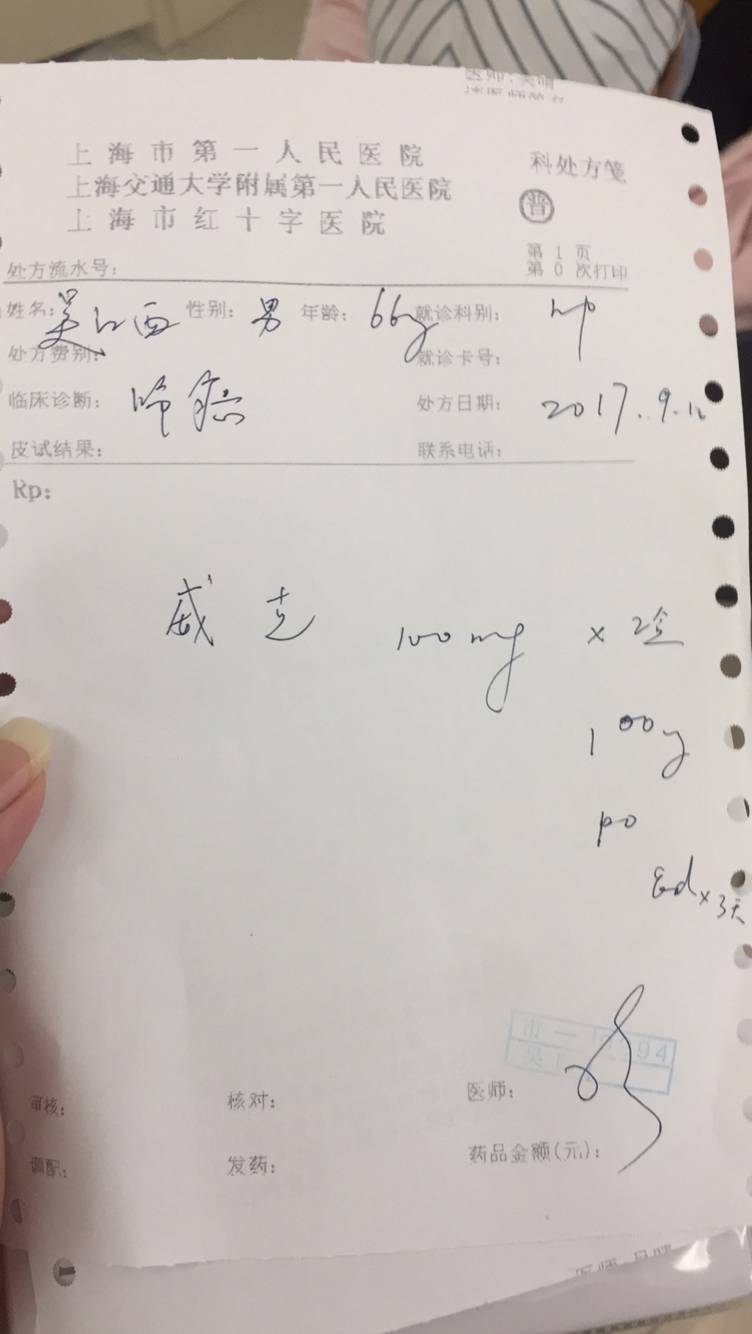 医师:吴晴
上海市第一人民医院
科处方笺
上海交通大学附属第一人民医院
普
上海市红十字医院
第 1 页
处方流水号:
第 0 次打印
姓名: 吴江西 性别: 男 年龄: 66y 就诊科别:
处方费别: 就诊卡号:
临床诊断: 肺癌 处方日期: 2017.9.12
皮试结果: 联系电话:
Rp:
威克 100mg x 2盒
100mg
po
Qd x 3天
市一 94
吴
医师:
审核: 核对:
调配: 发药: 药品金额(元):